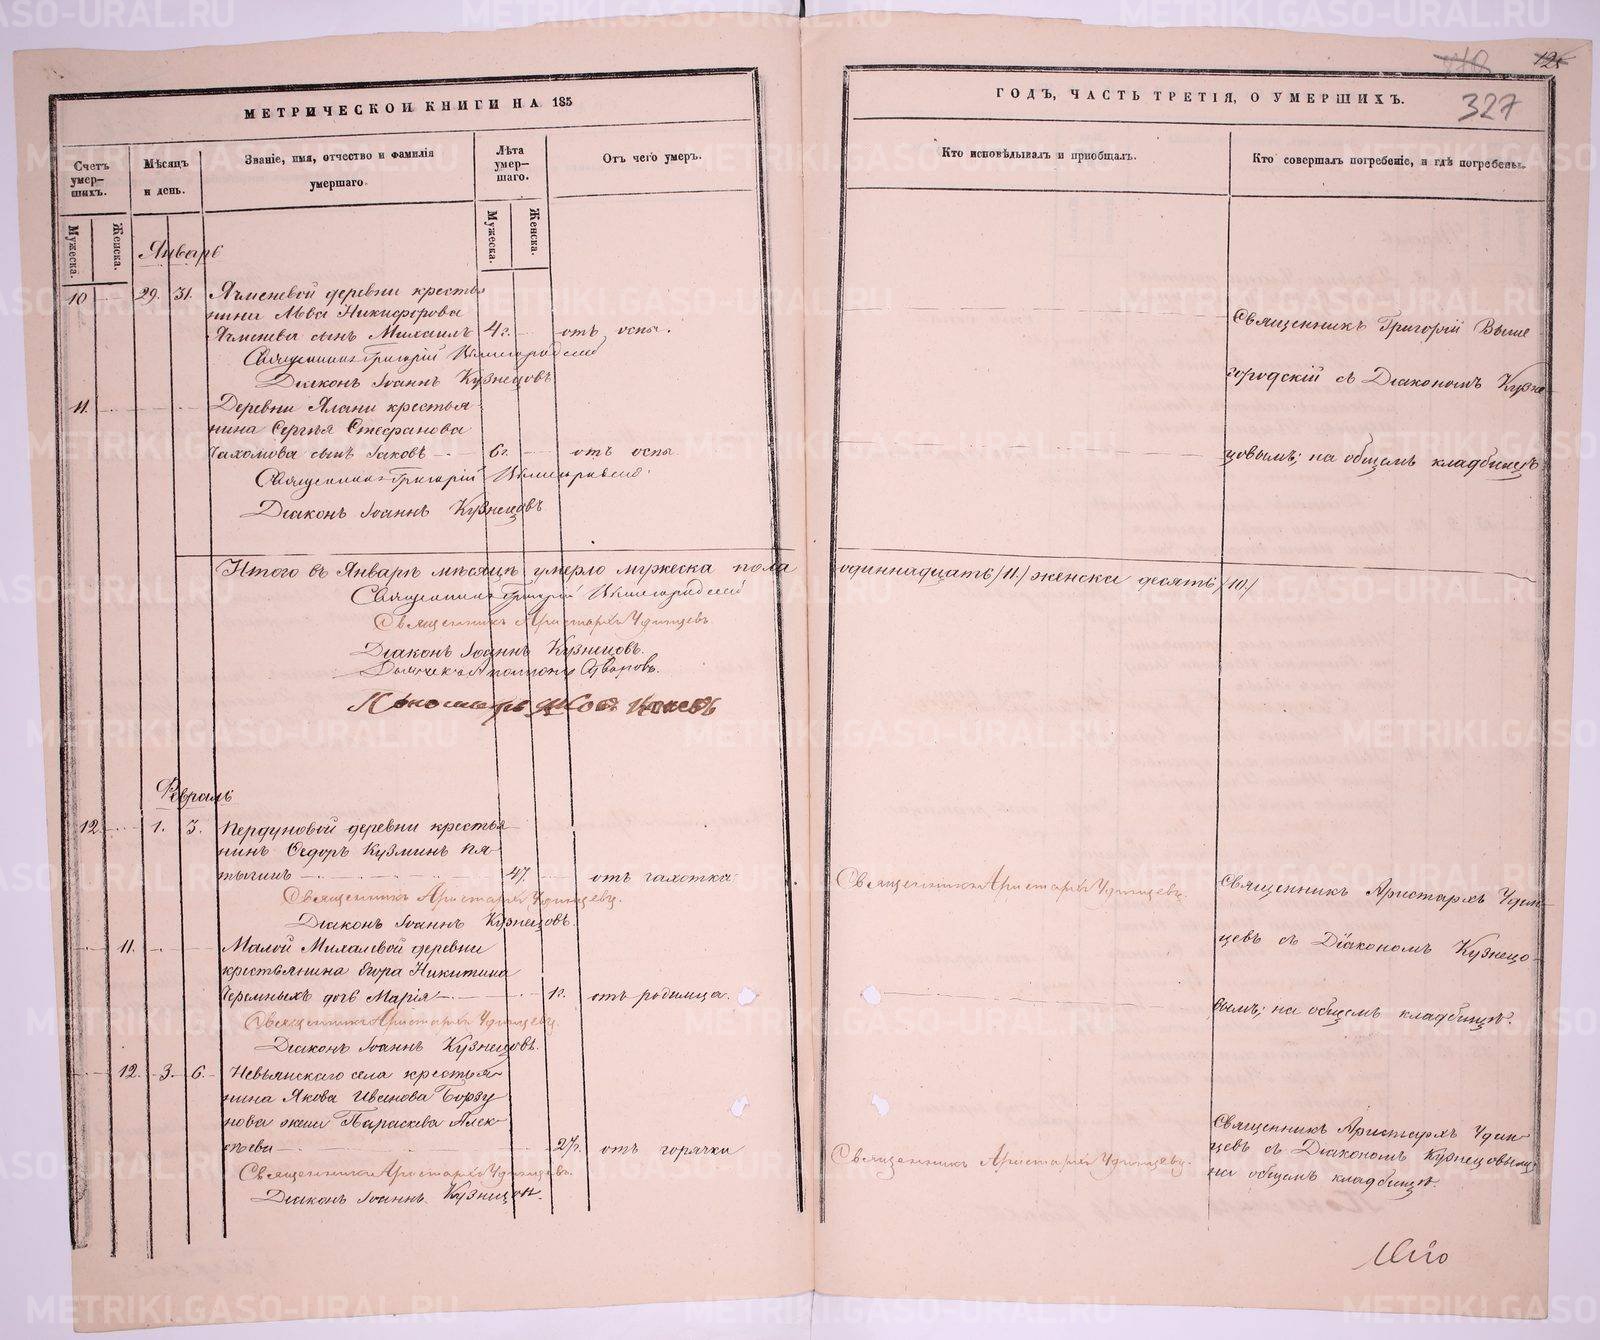 МЕТРИЧЕСКОЙ КНИГИ НА 185
ГОДЪ, ЧАСТЬ ТРЕТІЯ, О УМЕРШИХЪ.
125
327
Счетъ умер-шихъ.
Мѣсяцъ и день.
Званіе, имя, отчество и фамилія умершаго.
Лѣта умер-шаго.
Отъ чего умеръ.
Кто исповѣдывалъ и пріобщалъ.
Кто совершалъ погребеніе, и гдѣ погребены.
Мужеска.
Женска.
Мужеска.
Женска.
Январь
10 29. 31. Ячменевой деревни кресть
янина Льва Никифорова
Ячменева сынъ Михаилъ 4 г. отъ оспы.
Священникъ Григорій Вышегородскій
Діаконъ Іоаннъ Кузнецовъ
Священникъ Григорій Выше
городскій съ Діакономъ Кузне
цовымъ; на общемъ кладбищѣ
11. Деревни Ялани крестья
нина Сергѣя Стефанова
Пахомова сынъ Іаковъ 6 г. отъ оспы
Священникъ Григорій Вышегородскій
Діаконъ Іоаннъ Кузнецовъ
Итого въ Январѣ мѣсяцѣ умерло мужеска пола одиннадцать /11./ женска десять /10/
Священникъ Григорій Вышегородскій
Священникъ Аристархъ Удинцевъ.
Діаконъ Іоаннъ Кузнецовъ.
Пономарь
Февраль
12 1. 3. Пердуновой деревни крестья
нинъ Ѳедоръ Кузминъ Пя
тыгинъ 47. отъ чахотки
Священникъ Аристархъ Удинцевъ.
Діаконъ Іоаннъ Кузнецовъ.
Священникъ Аристархъ Удинцевъ.
Священникъ Аристархъ Удин
цевъ съ Діакономъ Кузнецо
вымъ; на общемъ кладбищѣ.
11. Малой Михалевой деревни
крестьянина Егора Никитина
Черемныхъ дочь Марія 1 г. отъ родимца.
Священникъ Аристархъ Удинцевъ.
Діаконъ Іоаннъ Кузнецовъ.
12. 3. 6. Невьянскаго села крестья
нина Якова Иванова Борзу
нова жена Параскева Алек
сѣева 27 г. отъ горячки
Священникъ Аристархъ Удинцевъ.
Діаконъ Іоаннъ Кузнецовъ.
Священникъ Аристархъ Удинцевъ.
Священникъ Аристархъ Удин
цевъ съ Діакономъ Кузнецовымъ
на общемъ кладбищѣ.
METRIKI.GASO-URAL.RU